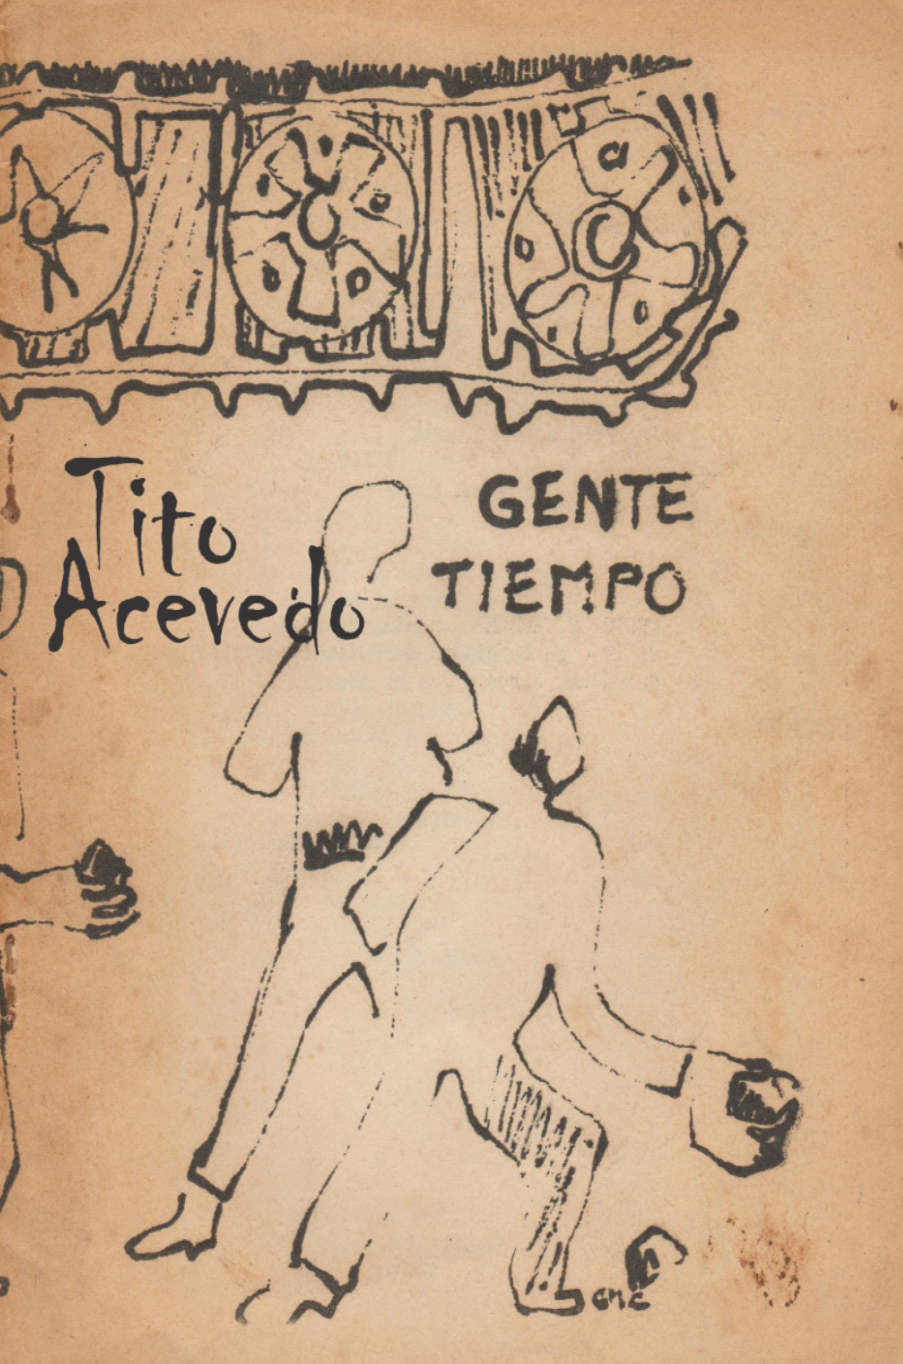 Tito
Acevedo
GENTE
TIEMPO